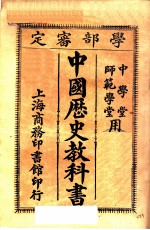 學部審定
中學堂
師範學堂
用
中國歷史教科書
上海商務印書館印行